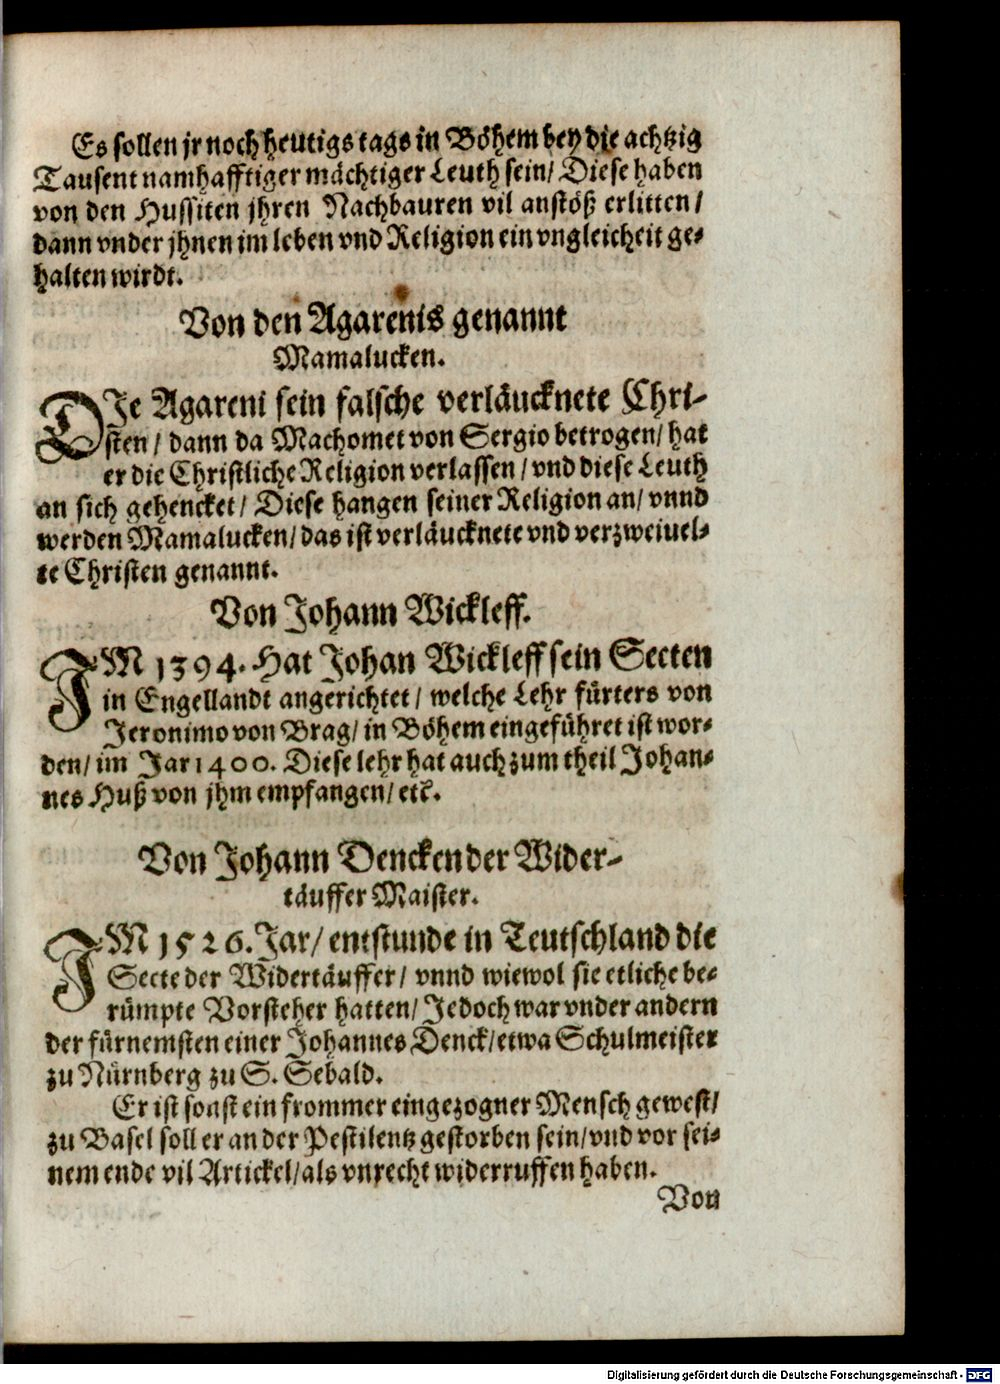 Es sollen jr noch heutigs tags in Böhem bey die achtzig
Tausent namhafftiger mächtiger Leuth sein/ Diese haben
von den Hussiten jhren Nachbauren vil anstöß erlitten/
dann vnder jhnen im leben vnd Religion ein vngleicheit ge-
halten wirdt.
Von den Agarenis genannt
Mamalucken.
DIe Agareni sein falsche verläucknete Chri-
sten/ dann da Machomet von Sergio betrogen/ hat
er die Christliche Religion verlassen/ vnd diese Leuth
an sich gehencket/ Diese hangen seiner Religion an/ vnnd
werden Mamalucken/ das ist verläucknete vnd verzweiuel-
te Christen genannt.
Von Johann Wickleff.
IM 1394. Hat Johan Wickleff sein Secten
in Engellandt angerichtet/ welche Lehr fürters von
Jeronimo von Brag/ in Böhem eingeführet ist wor-
den/ im Jar 1400. Diese lehr hat auch zum theil Johan-
nes Huß von jhm empfangen/ etc.
Von Johann Dencken der Wider-
täuffer Maister.
IM 1526. Jar/ entstunde in Teutschland die
Secte der Widertäuffer/ vnnd wiewol sie etliche be-
rümpte Vorsteher hatten/ Jedoch war vnder andern
der fürnemsten einer Johannes Denck/ etwa Schulmeister
zu Nürnberg zu S. Sebald.
Er ist sonst ein frommer eingezogner Mensch gewest/
zu Basel soll er an der Pestilentz gestorben sein/ vnd vor sei-
nem ende vil Artickel/ als vnrecht widerruffen haben.
Von
Digitalisierung gefördert durch die Deutsche Forschungsgemeinschaft - DFG